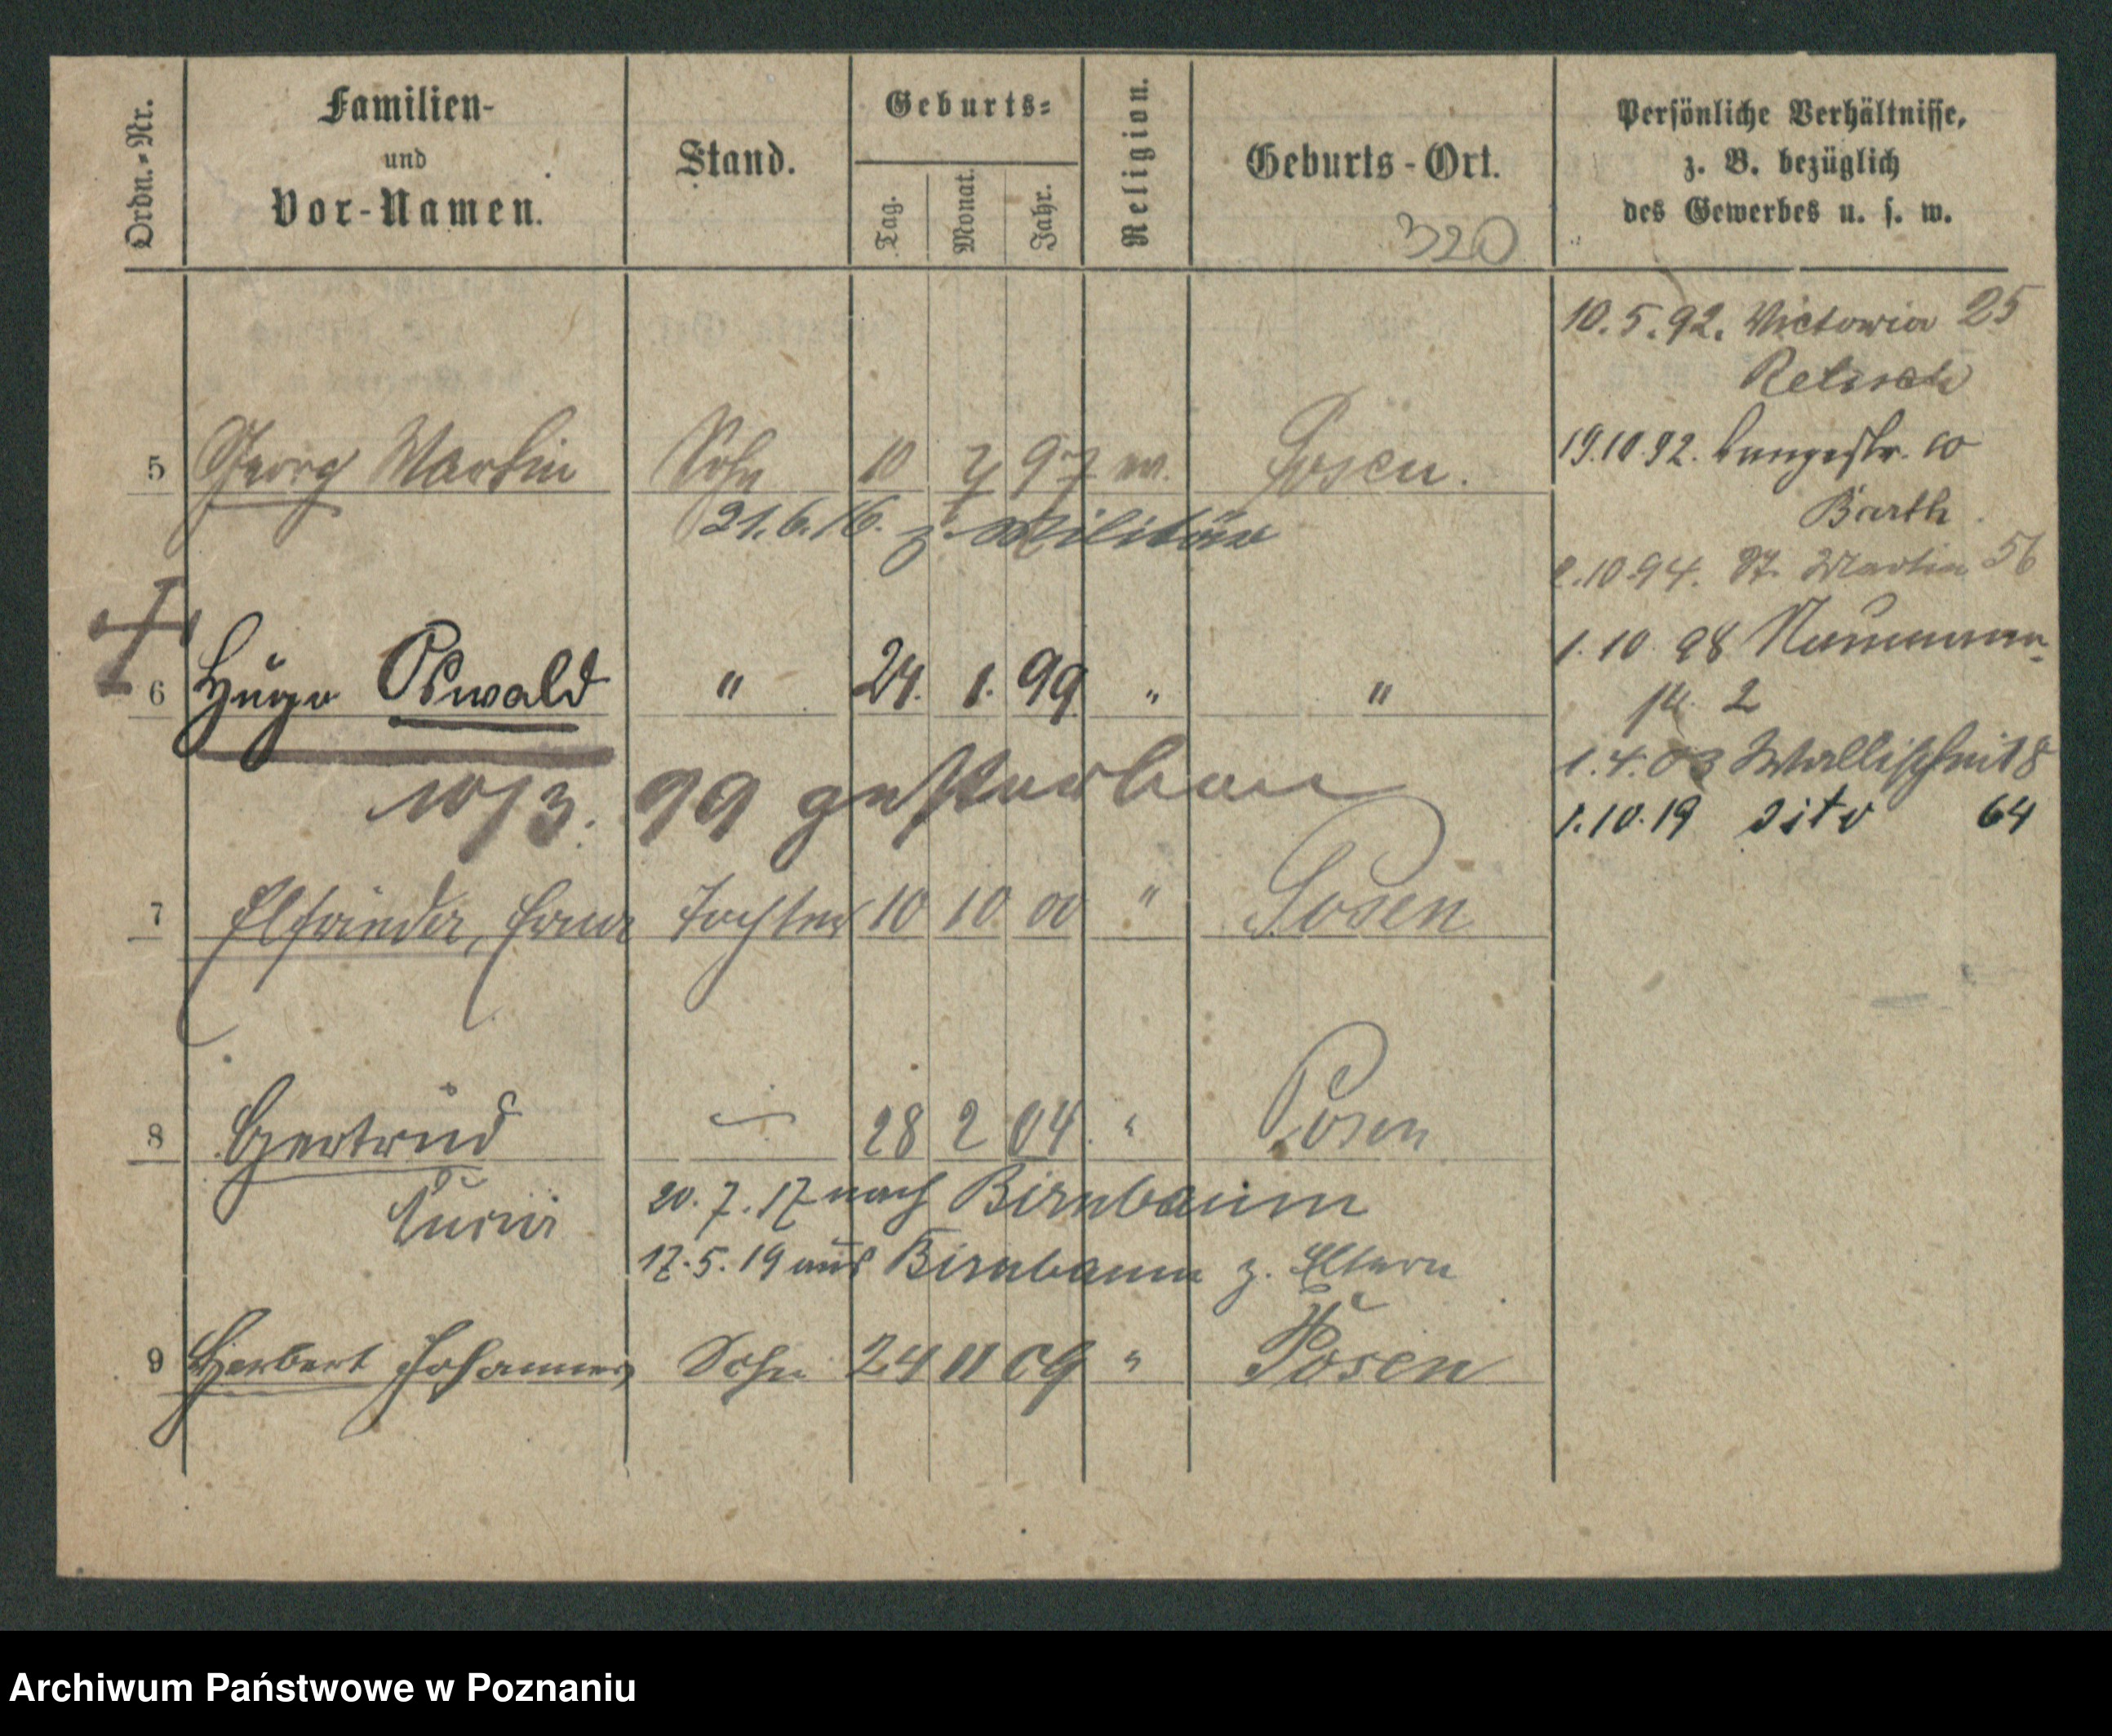 Ordn.-Nr.
Familien-
und
Vor-Namen.
Stand.
Geburts-
Tag.
Monat.
Jahr.
Religion.
Geburts-Ort.
320
Persönliche Verhältnisse,
z. B. bezüglich
des Gewerbes u. s. w.
10.5.92. Victoria 25
19.10.92. Langestr. 10
Barth
5 Georg Martin Sohn 10 7 97 ev. Posen.
21.6.16. z. Militär
10.94. St. Martin 56
1.10.98 Naumann-
2
6 Hugo Oswald " 24. 1. 99 " "
10/3. 99 gestorben
1.4.03 Wallischei 8
1.10.19 dito 64
7 Elfriede, Erna Tochter 10 10 00 " Posen
8 Gertrud — 28 2 04. " Posen
20.7.17 nach Birnbaum
17.5.19 aus Birnbaum z. Eltern
9 Herbert Johannes Sohn 24 11 09 " Posen
Archiwum Państwowe w Poznaniu